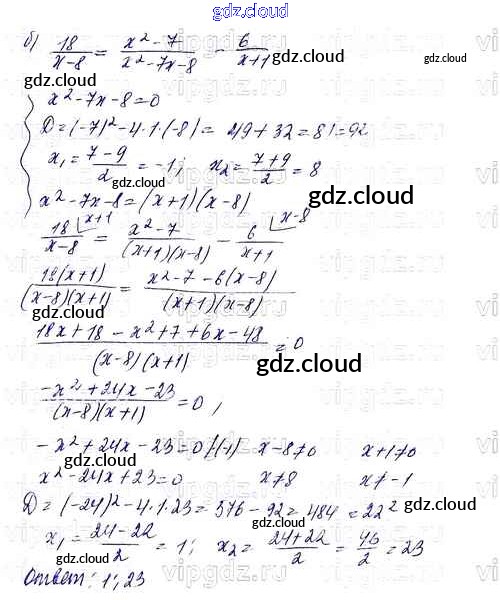 gdz.cloud
б) 18/(x-8) = (x²-7)/(x²-7x-8) - 6/(x+1)
gdz.cloud gdz.cloud
x²-7x-8=0
gdz.cloud
D=(-7)²-4·1·(-8)= 49+32=81=9²
x₁=(7-9)/2=-1; x₂=(7+9)/2=8
gdz.cloud
x²-7x-8=(x+1)(x-8)
gdz.cloud
18/(x-8) ⌊x+1 = (x²-7)/((x+1)(x-8)) - 6/(x+1) ⌊x-8
gdz.cloud
18(x+1)/((x-8)(x+1)) = (x²-7-6(x-8))/((x+1)(x-8))
gdz.cloud
(18x+18-x²+7+6x-48)/((x-8)(x+1)) = 0
gdz.cloud
(-x²+24x-23)/((x-8)(x+1)) = 0,
-x²+24x-23=0 /(-1) x-8≠0 x+1≠0
gdz.cloud
x²-24x+23=0 x≠8 x≠-1
D=(-24)²-4·1·23=576-92=484=22²
gdz.cloud gdz.cloud
x₁=(24-22)/2=1; x₂=(24+22)/2=46/2=23
Ответ: 1; 23
gdz.cloud